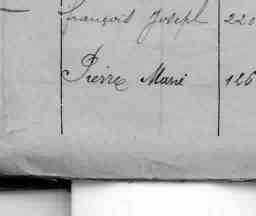 françois Joseph 220
Pierre Marie 126